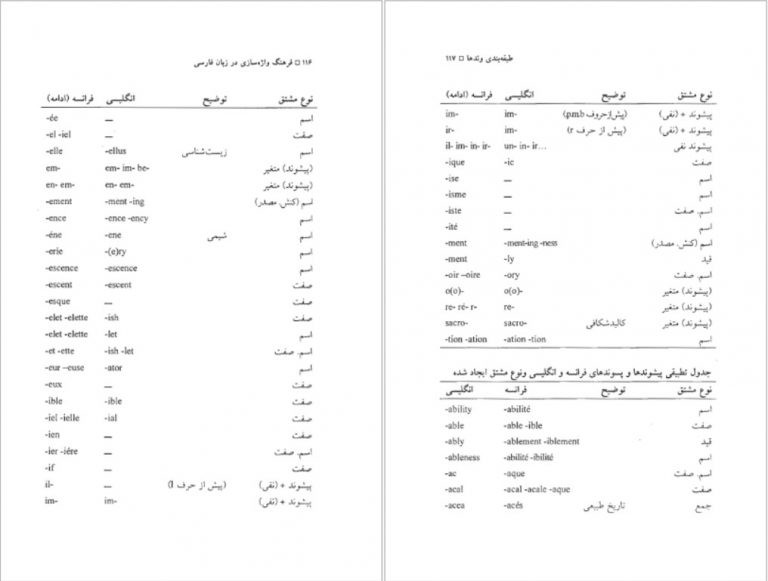 ۱۱۶ □ فرهنگ واژه‌سازی در زبان فارسی
نوع مشتق توضیح انگلیسی فرانسه (ادامه)
اسم — -ée
صفت — -el -iel
اسم زیست‌شناسی -ellus -elle
(پیشوند) متغیر em- im- be- em-
(پیشوند) متغیر en- em- en- em-
اسم (کنش. مصدر) -ment -ing -ement
اسم -ence -ency -ence
اسم شیمی -ene -éne
اسم -(e)ry -erie
اسم -escence -escence
صفت -escent -escent
صفت — -esque
صفت -ish -elet -elette
اسم -let -elet -elette
اسم. صفت -ish -let -et -ette
اسم -ator -eur –euse
صفت — -eux
صفت -ible -ible
صفت -ial -iel -ielle
صفت — -ien
اسم. صفت — -ier -iére
صفت — -if
پیشوند + (نفی) (پیش از حرف l) — il-
پیشوند + (نفی) im- im-
طبقه‌بندی وندها □ ۱۱۷
نوع مشتق توضیح انگلیسی فرانسه (ادامه)
پیشوند + (نفی) (پیش‌ازحروف p.m.b) im- im-
پیشوند + (نفی) (پیش از حرف r) im- ir-
پیشوند نفی un- in- ir... il- im- in- ir-
صفت -ic -ique
اسم — -ise
اسم — -isme
اسم. صفت — -iste
اسم — -ité
اسم (کنش. مصدر) -ment-ing -ness -ment
قید -ly -ment
اسم. صفت -ory -oir –oire
(پیشوند) متغیر o(o)- o(o)-
(پیشوند) متغیر re- re- ré- r-
(پیشوند) متغیر کالبدشکافی sacro- sacro-
اسم -ation -tion -tion -ation
جدول تطبیقی پیشوندها و پسوندهای فرانسه و انگلیسی ونوع مشتق ایجاد شده
نوع مشتق توضیح فرانسه انگلیسی
اسم -abilité -ability
صفت -able -ible -able
قید -ablement -iblement -ably
اسم -abilité -ibilité -ableness
اسم. صفت -aque -ac
صفت -acal -acale -aque -acal
جمع تاریخ طبیعی -acés -acea